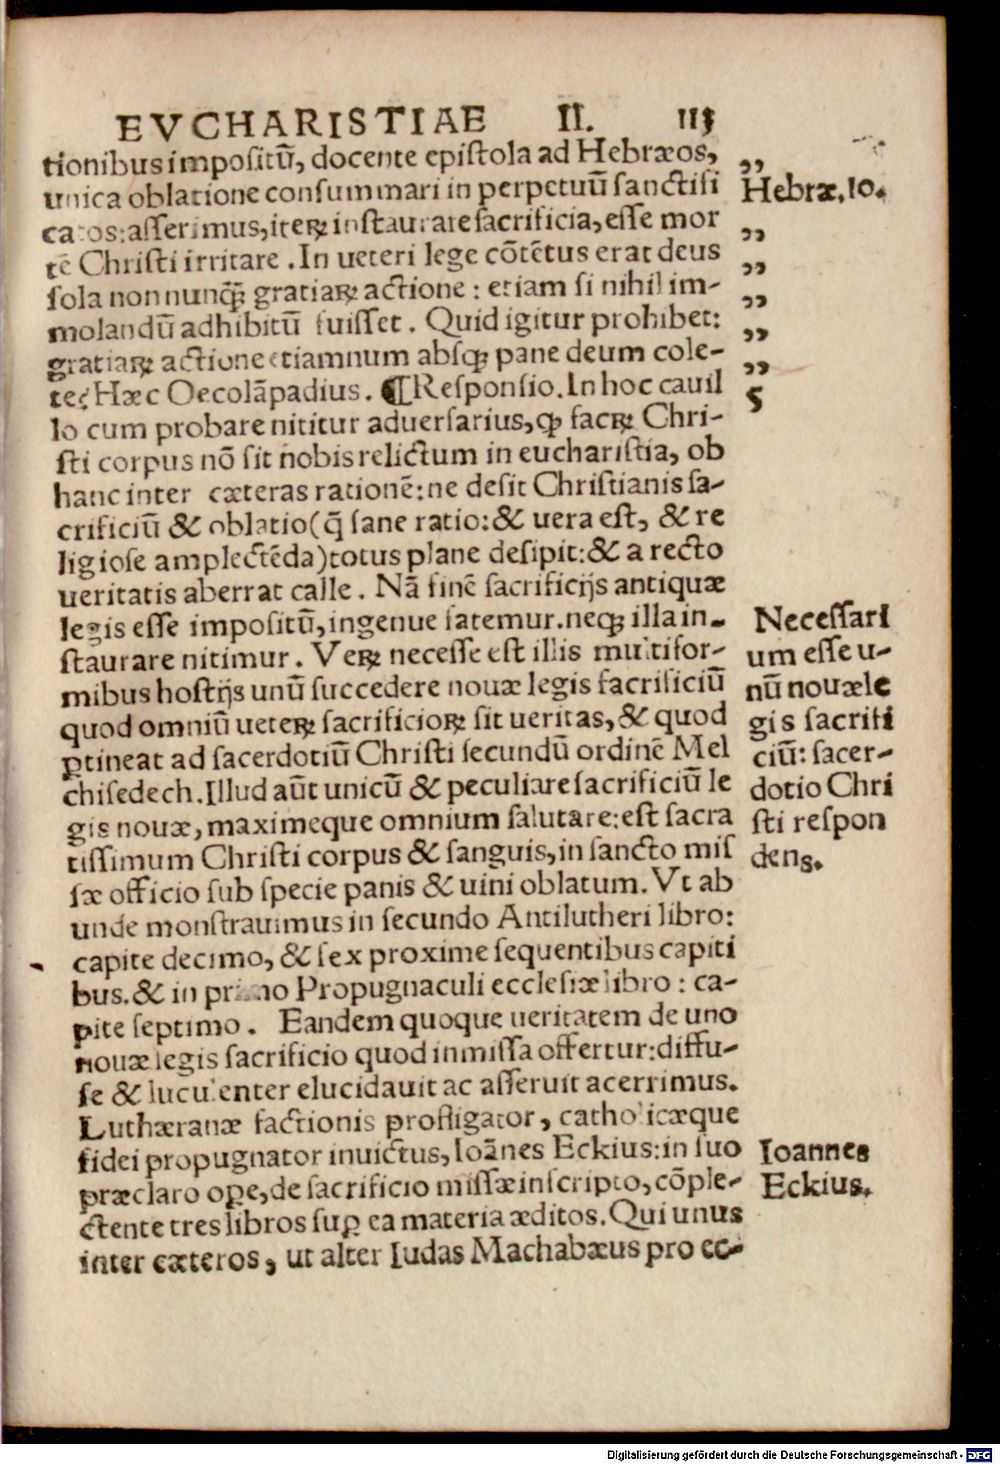 EVCHARISTIAE II. 113
tionibus impositū, docente epistola ad Hebræos,
unica oblatione consummari in perpetuū sanctifi
catos: asserimus, iterꝝ instaurare sacrificia, esse mor
tē Christi irritare. In ueteri lege cōtētus erat deus
sola nonnunq̄ꝫ gratiaꝝ actione: etiam si nihil im-
molandū adhibitū fuisset. Quid igitur prohibet:
gratiaꝝ actione etiamnum absqꝫ pane deum cole-
re? Hæc Oecolāpadius. ¶ Responsio. In hoc cauil
lo cum probare nititur aduersarius, ꝙ sacꝝ Chri-
sti corpus nō sit nobis relictum in eucharistia, ob
hanc inter cæteras rationē: ne desit Christianis sa-
crificiū & oblatio (q̄ sane ratio: & uera est, & re
ligiose amplectēda) totus plane desipit: & a recto
ueritatis aberrat calle. Nā finē sacrificijs antiquæ
legis esse impositū, ingenue fatemur. neqꝫ illa in-
staurare nitimur. Veꝝ necesse est illis multifor-
mibus hostijs unū succedere nouæ legis sacrificiū
quod omniū ueteꝝ sacrificioꝝ sit ueritas, & quod
ꝑtineat ad sacerdotiū Christi secundū ordinē Mel
chisedech. Illud aūt unicū & peculiare sacrificiū le
gis nouæ, maximeque omnium salutare: est sacra
tissimum Christi corpus & sanguis, in sancto mis
sæ officio sub specie panis & uini oblatum. Vt ab
unde monstrauimus in secundo Antilutheri libro:
capite decimo, & sex proxime sequentibus capiti
bus. & in primo Propugnaculi ecclesiæ libro: ca-
pite septimo. Eandem quoque ueritatem de uno
nouæ legis sacrificio quod in missa offertur: diffu-
se & luculenter elucidauit ac asseruit acerrimus.
Lutheranæ factionis profligator, catholicæque
fidei propugnator inuictus, Ioānes Eckius: in suo
præclaro oꝑe, de sacrificio missæ inscripto, cōple-
ctente tres libros suꝑ ea materia æditos. Qui unus
inter cæteros, ut alter Iudas Machabæus pro ec-
,,
Hebræ. 10.
,,
,,
,,
,,
,,
5
Necessari
um esse u-
nū nouæ le
gis sacrifi
ciū: sacer-
dotio Chri
sti respon
dens.
Ioannes
Eckius.
Digitalisierung gefördert durch die Deutsche Forschungsgemeinschaft - DFG